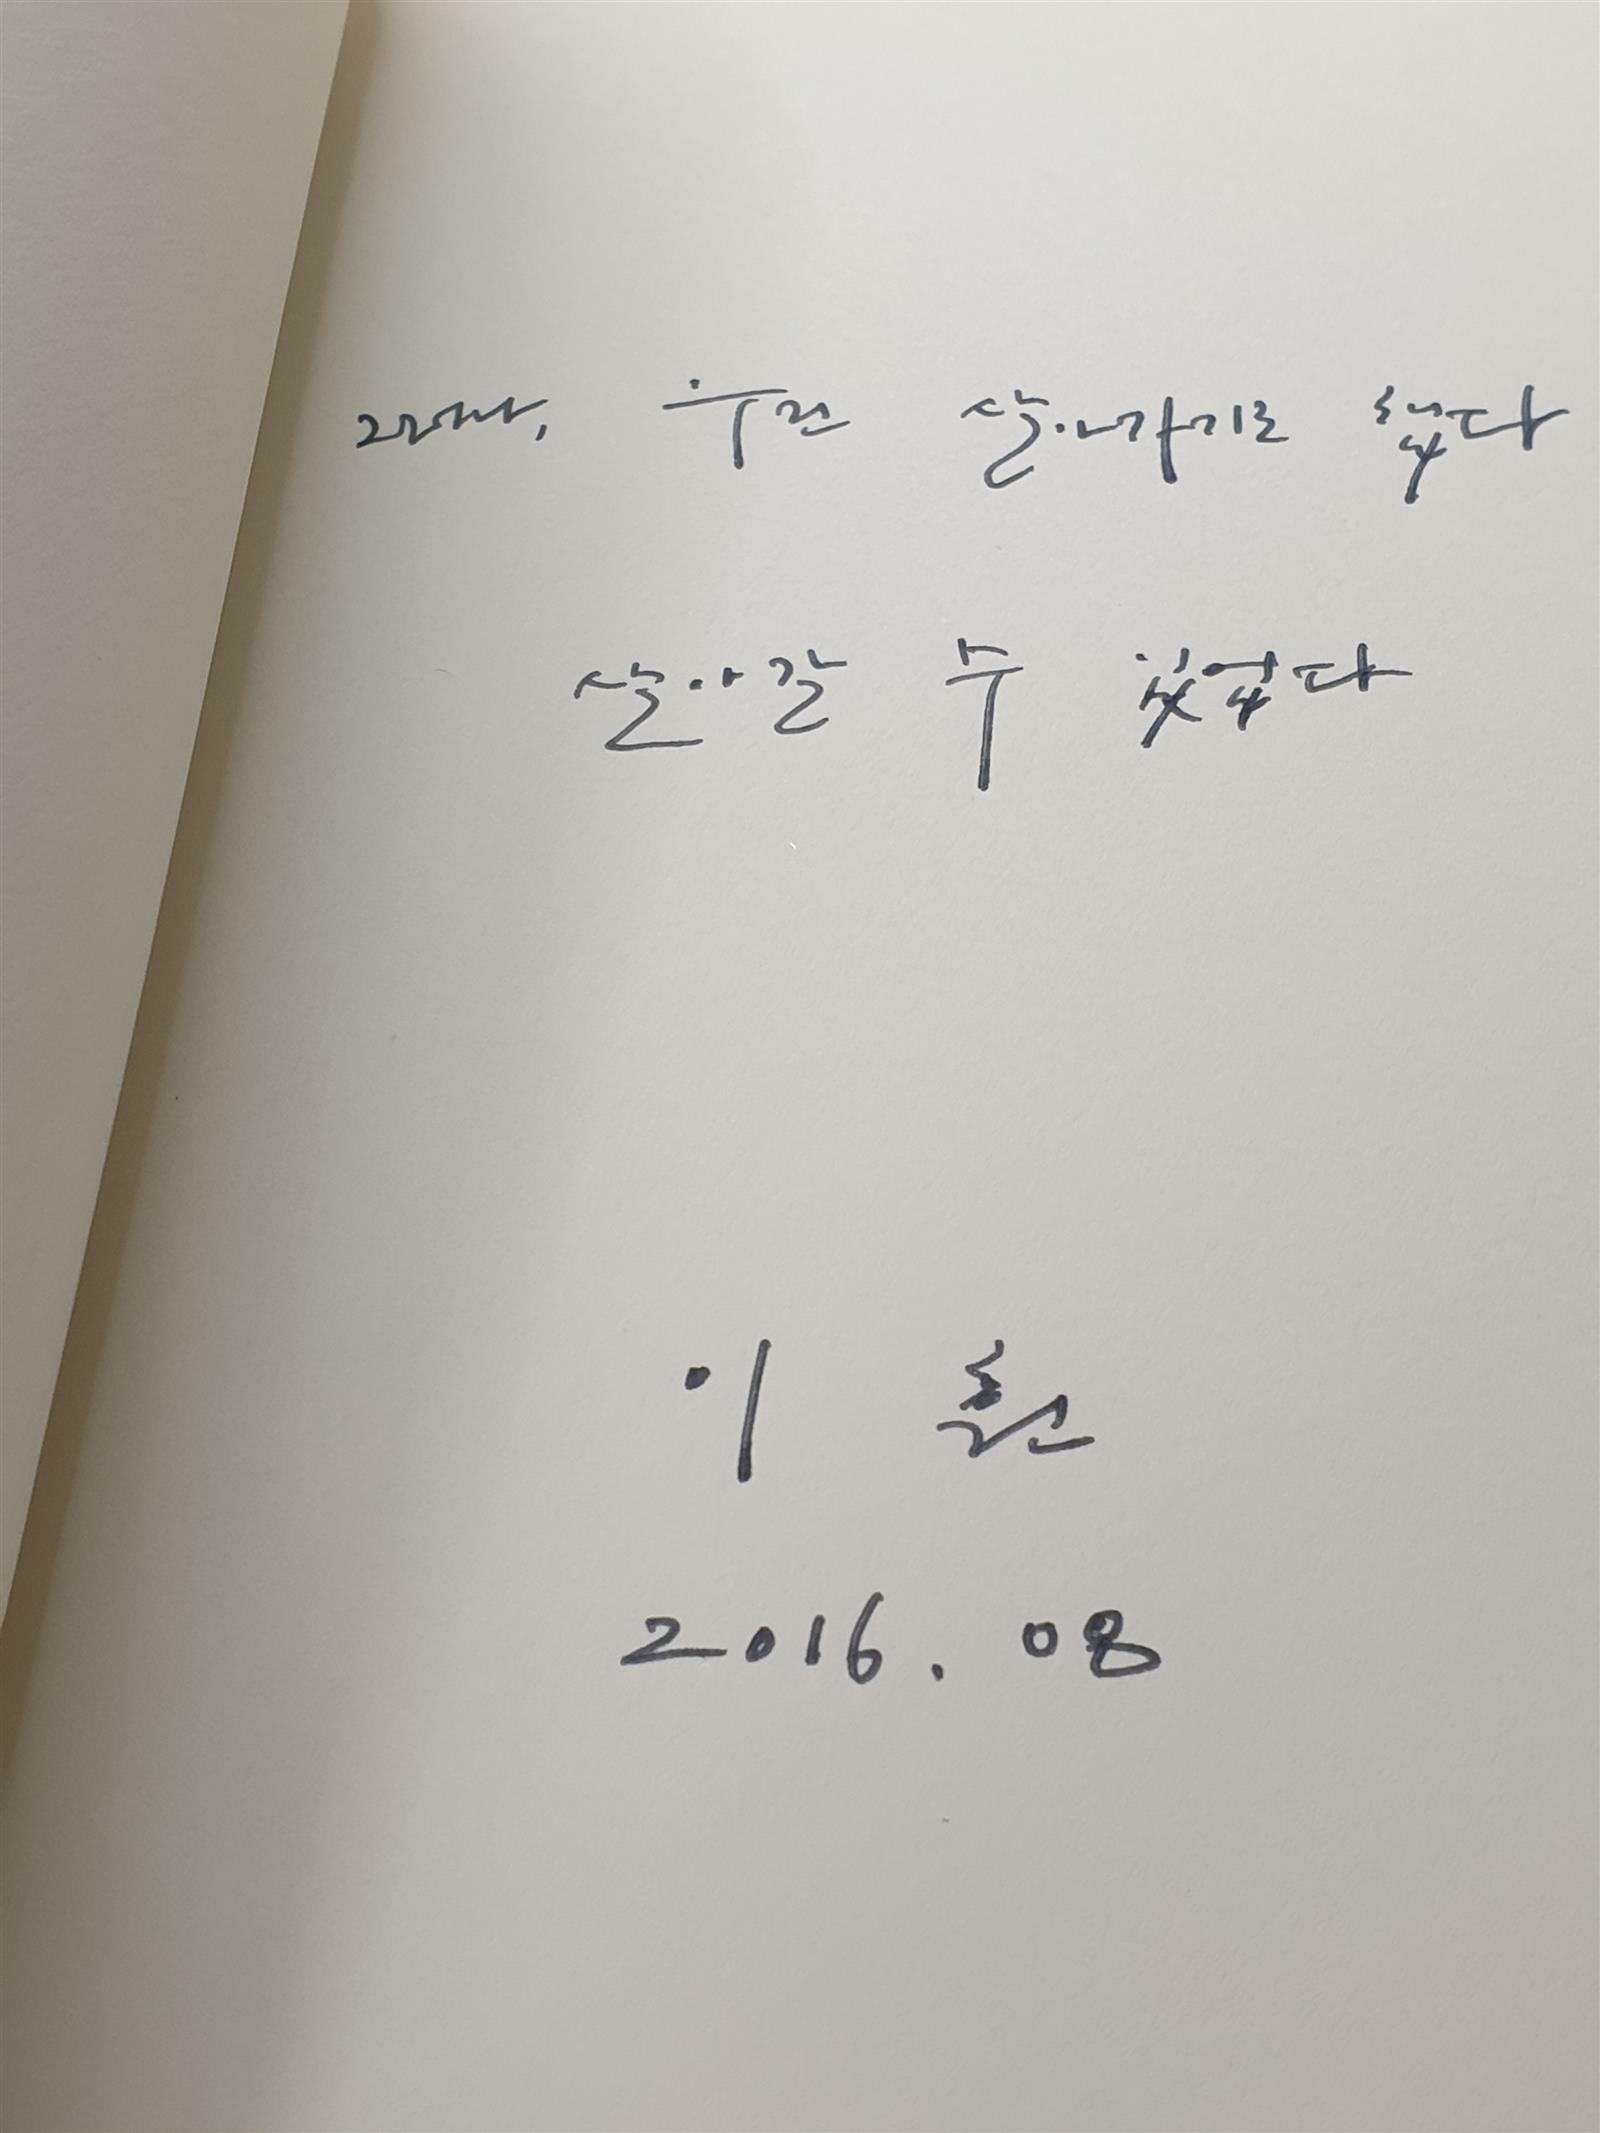 그래서, 우린 살아가기로 했다
살아갈 수 있었다
이 훤
2016. 08